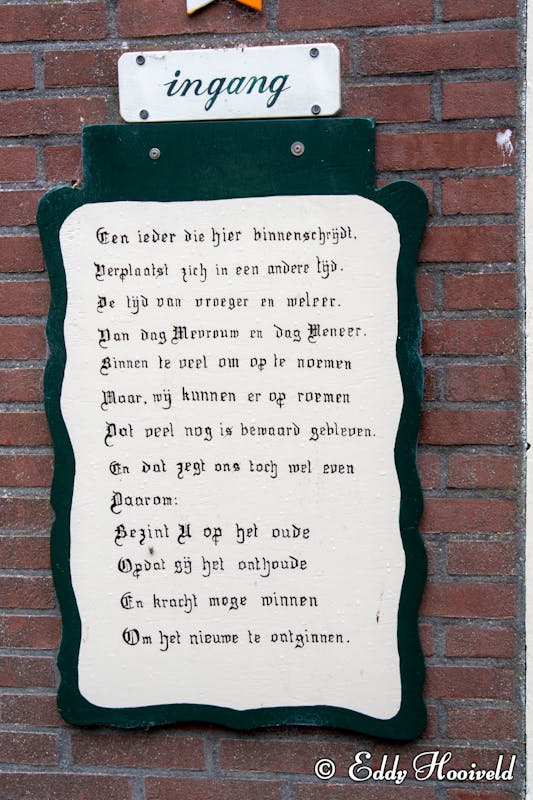 ingang
Een ieder die hier binnenschrijdt,
Verplaatst zich in een andere tijd.
De tijd van vroeger en weleer.
Van dag Mevrouw en dag Meneer.
Binnen te veel om op te noemen
Maar, wij kunnen er op roemen
Dat veel nog is bewaard gebleven.
En dat zegt ons toch wel even
Daarom:
Bezint U op het oude
Opdat gij het onthoude
En kracht moge winnen
Om het nieuwe te ontginnen.
© Eddy Hooiveld